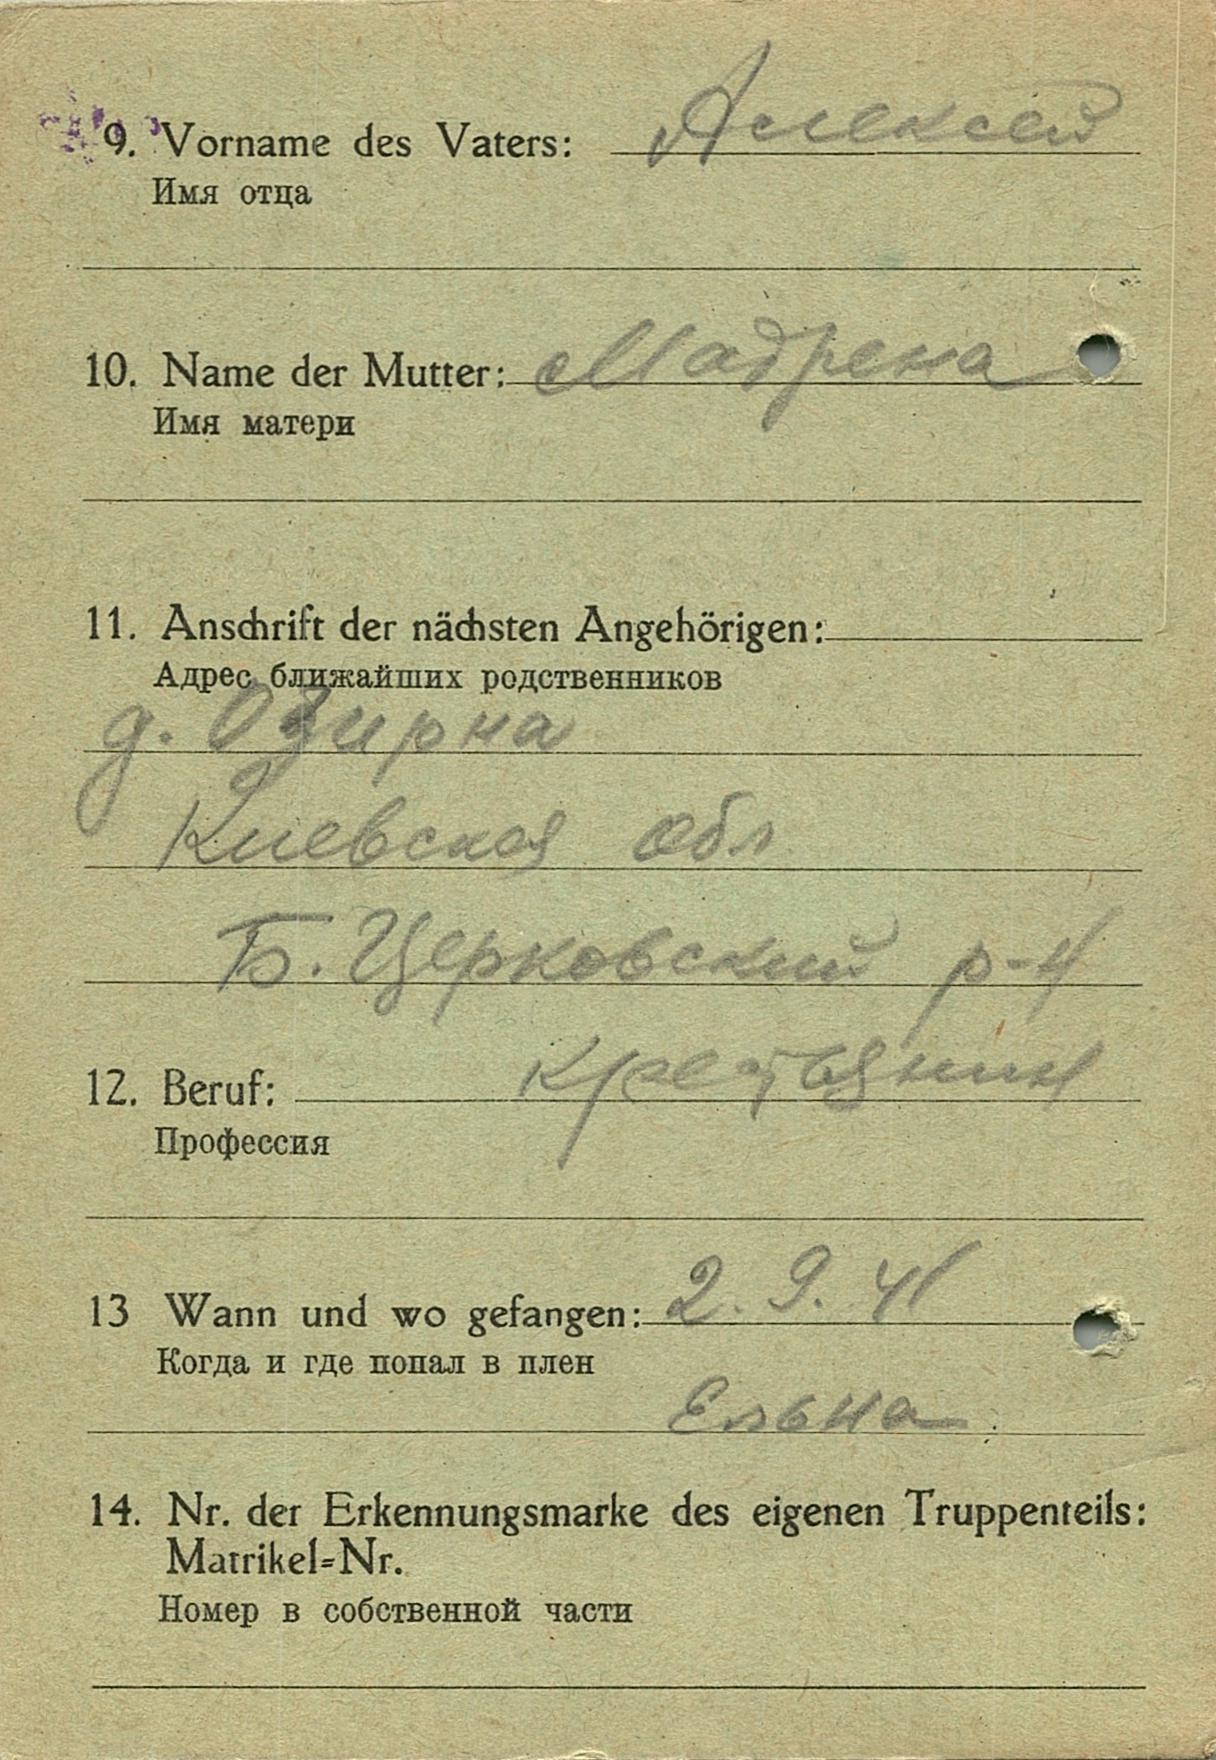 9. Vorname des Vaters: Алексей
Имя отца
10. Name der Mutter: Мадрена
Имя матери
11. Anschrift der nächsten Angehörigen:
Адрес ближайших родственников
д. Озирна
Киевская обл
Б. Церковский р-н
12. Beruf: крестьянин
Профессия
13 Wann und wo gefangen: 2. 9. 41
Когда и где попал в плен
Ельна
14. Nr. der Erkennungsmarke des eigenen Truppenteils:
Matrikel=Nr.
Номер в собственной части